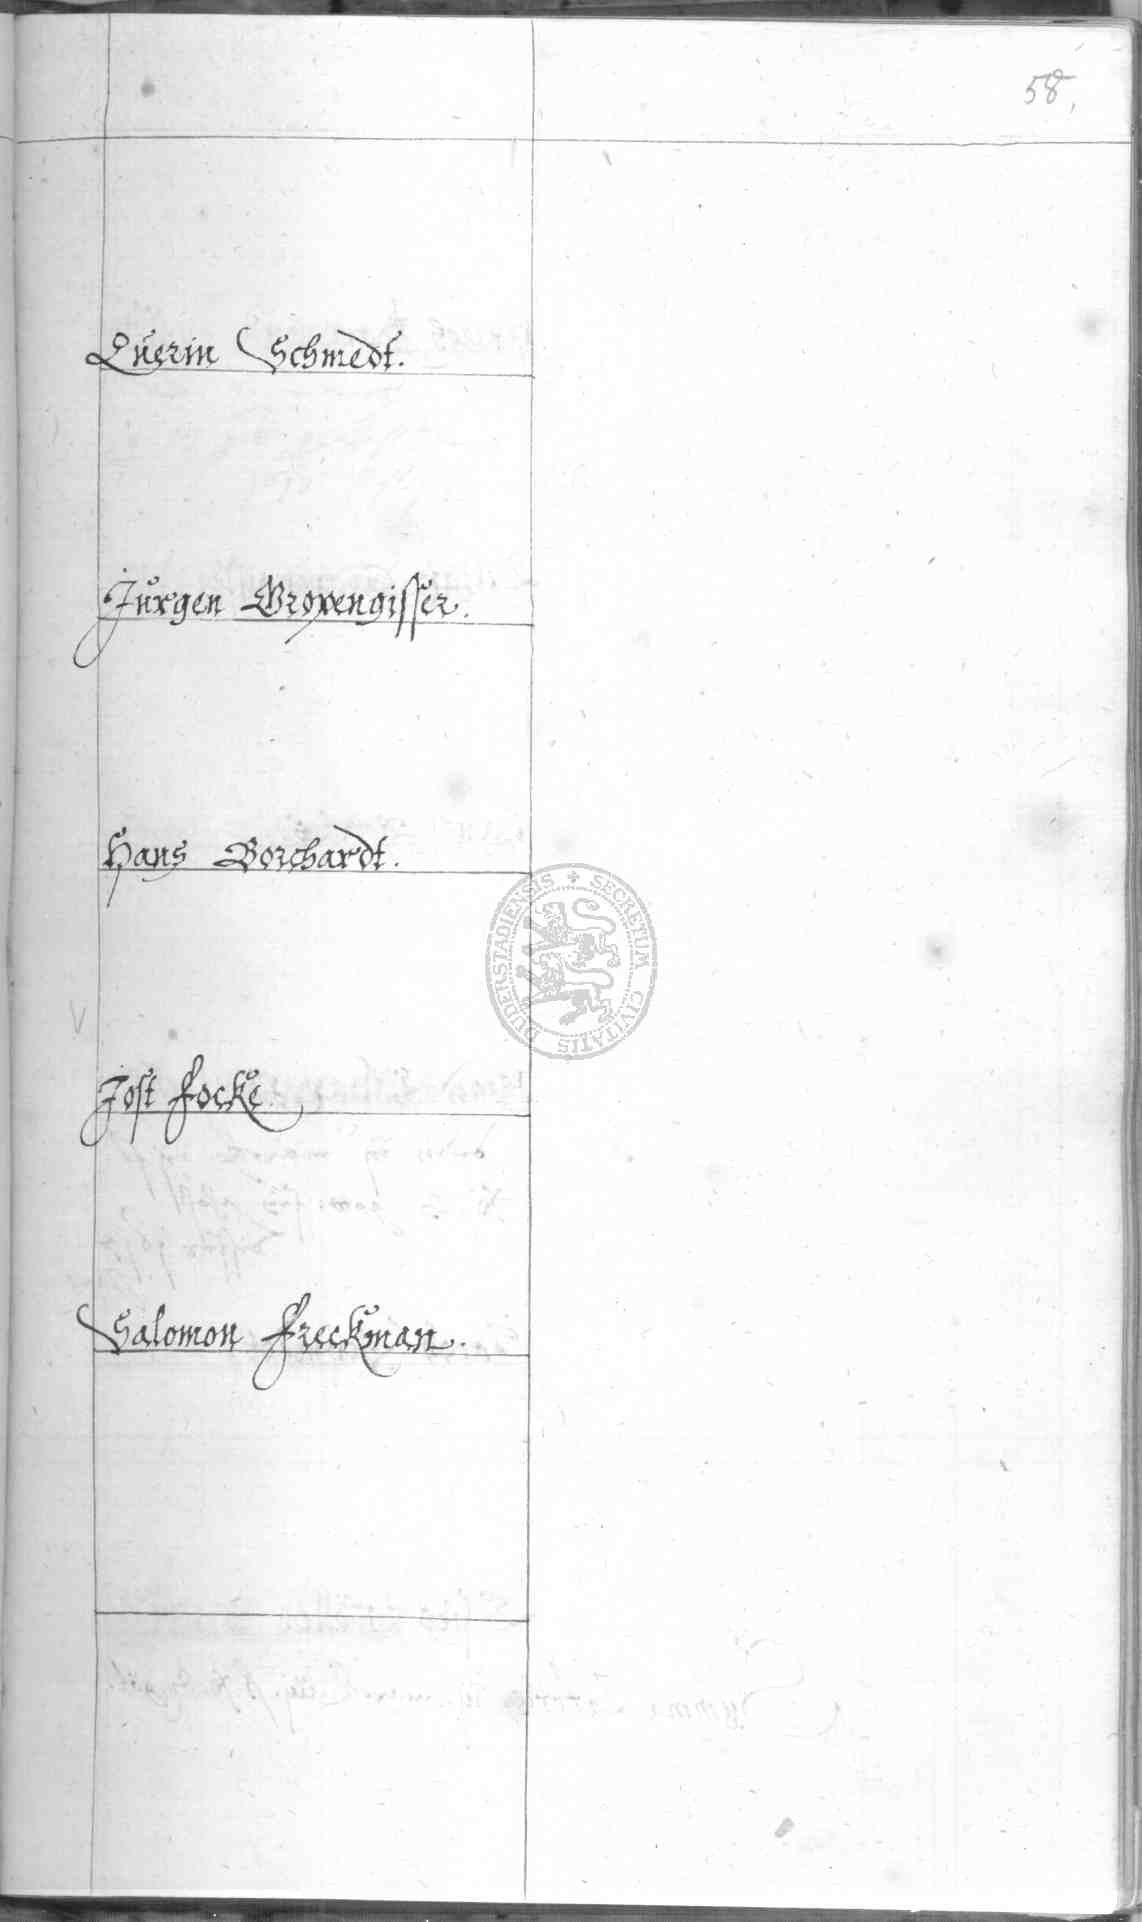 58,
Querin Schmedt.
Jurgen Gropengisser.
Hans Borchardt.
Jost Focke.
Salomon Freckman.
SECRETUM CIVITATIS DUDERSTADIENSIS